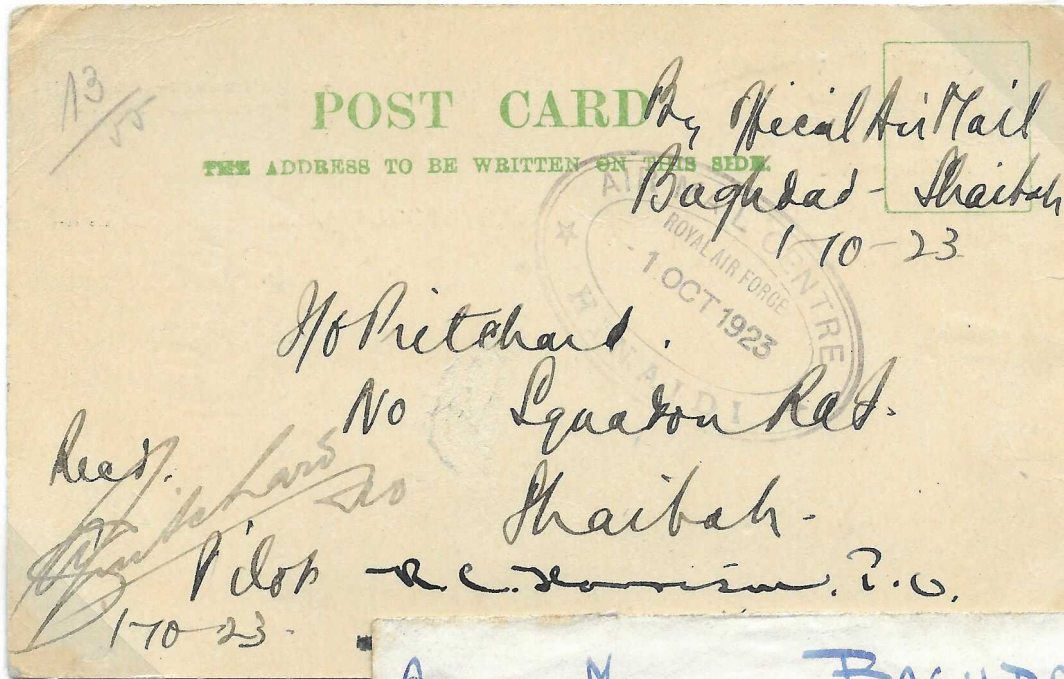 13/55
POST CARD
THE ADDRESS TO BE WRITTEN ON THIS SIDE.
By Official Air Mail
Baghdad - Shaibah
1-10-23
AIR MAIL CENTRE
ROYAL AIR FORCE
1 OCT 1923
HINAIDI
F/O Pritchard.
No Squadron RAF.
Shaibah.
Recd.
Pritchard
F/O
Pilot R.C. Harrison. F.O.
1-10-23.
BAGHDA